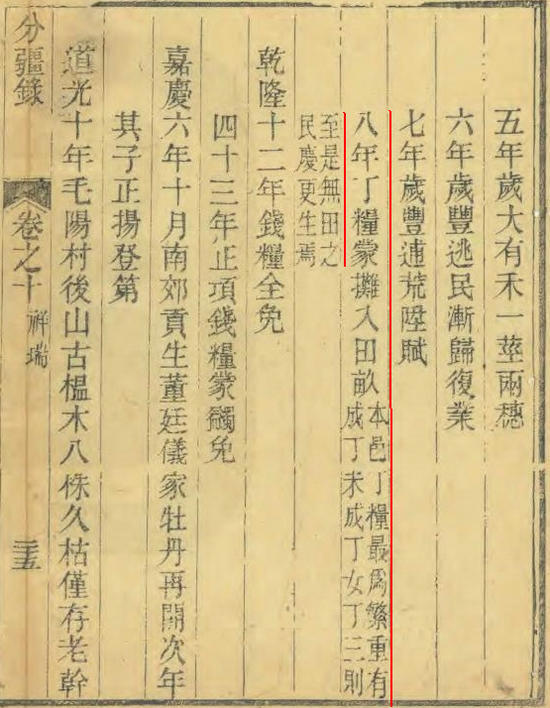 五年歲大有禾一莖兩穗
六年歲豐逃民漸歸復業
七年歲豐逋荒陞賦
八年丁糧蒙攤入田畝本邑丁糧最爲繁重有
成丁未成丁女丁三則
至是無田之
民慶更生焉
乾隆十二年錢糧全免
四十三年正項錢糧蒙蠲免
嘉慶六年十月南郊貢生董廷儀家牡丹再開次年
其子正揚登第
道光十年毛陽村後山古榅木八株久枯僅存老幹
分疆錄
卷之十
祥瑞
三五